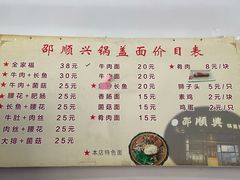 邵顺兴锅盖面价目表
★ 全家福 38元
★ 牛肉+长鱼 30元
★ 牛肉+菌菇 25元
★ 腰花+肥肠 25元
★ 长鱼+腰花 25元
牛肚+肉丝 25元
肉丝+腰花 25元
大排+菌菇 25元
牛肉面 20元
牛肚面 20元
长鱼面 20元
香肠面 15元
菌菇面 15元
★ 肴肉面 15元
★ 肴肉 8元/块
狮子头 5元/只
素鸡 2元/块
煎蛋 2元/只
★ 本店特色面
邵顺兴
锅盖面